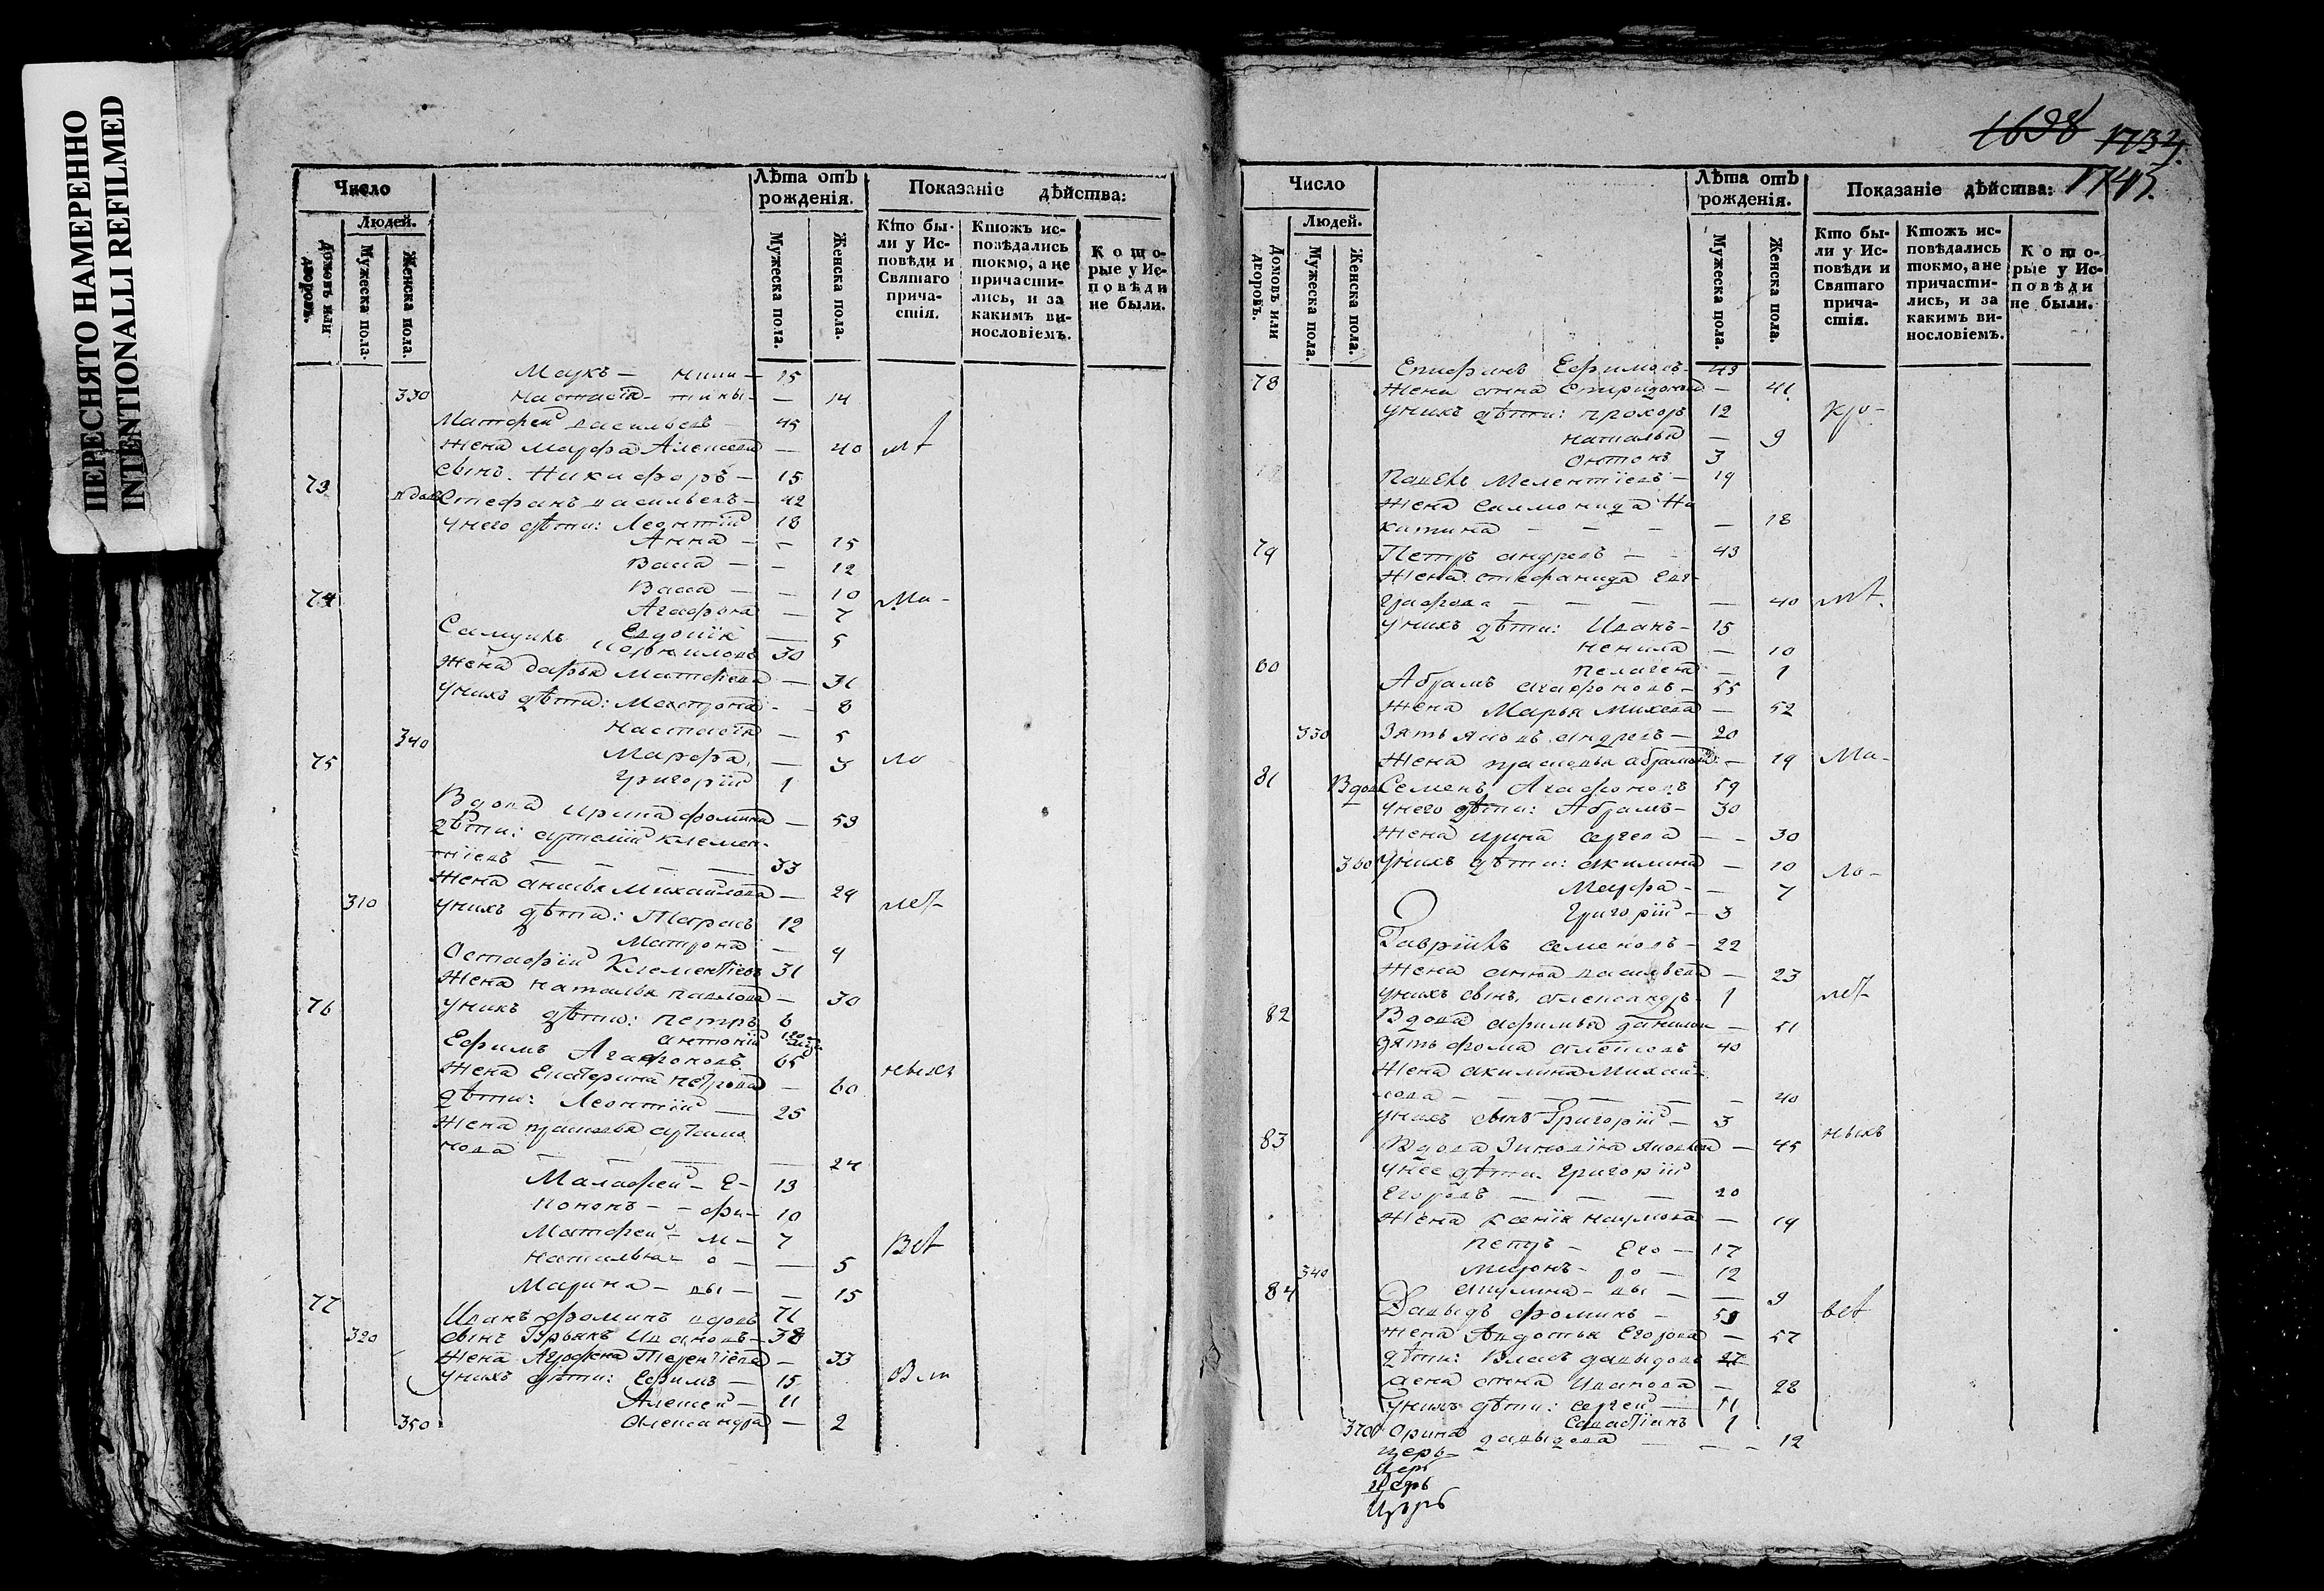 ПЕРЕСНЯТО НАМЕРЕННО
INTENTIONALLI REFILMED
Число
Лѣта отъ рожденія.
Показаніе дѣйства:
Людей.
Домовъ или дворовъ.
Мужеска пола.
Женска пола.
Мужеска пола.
Женска пола.
Кто были у Исповѣди и Святаго причастія.
Ктожъ исповѣдались токмо, а не причастились, и за какимъ винословіемъ.
Которые у Исповѣди не были.
15
330 14
Матфей Васильевъ 45
Жена Марфа Алексеева — 40
сынъ Никифоръ — 15
73 вдовъ Стефанъ Васильевъ — 42
у него дѣти: Леонтій 18
Анна — — 15
Васса — — 12
Васса — — 10
74 Агафья — 7
Евдокія — 5
Самуилъ Корниловъ 30
Жена Дарья Матфеева — 31
у нихъ дѣти: Матрона — 8
340 Настасія — 5
75 Марфа — 3
Григорій 1
Вдова Ирина Фомина — 59
дѣти: Артемій Клемен-
тіевъ — — — 33
Жена Анисья Михайлова — 29
310 у нихъ дѣти: Тарасъ 12
Матрона — 9
Остафій Клементіевъ 31
Жена Наталья Павлова — 30
76 у нихъ дѣти: Петръ 6
Антоній
Ефимъ Агафоновъ 65
Жена Екатерина Петрова — 60
дѣти: Леонтій — 25
Жена Прасковья Артамо
нова — — — — 24
Малафей — Е — 13
Кононъ — фи — 10
Матфей — м — 7
Наталья — о — — 5
Марина — вы — — 15
77 Иванъ Фоминъ вдовъ 71
320 сынъ Гурьянъ Ивановъ — 38
Жена Агрофена Терентіева — 33
у нихъ дѣти: Ефимъ — 15
Алексей — 11
350 Александра — 2
1698 1734.
1745.
Число
Лѣта отъ рожденія.
Показаніе дѣйства:
Людей.
Домовъ или дворовъ.
Мужеска пола.
Женска пола.
Мужеска пола.
Женска пола.
Кто были у Исповѣди и Святаго причастія.
Ктожъ исповѣдались токмо, а не причастились, и за какимъ винословіемъ.
Которые у Исповѣди не были.
78 Епифанъ Ефимовъ 43
Жена Анна Спиридонова — 41
у нихъ дѣти: Прохоръ 12
Наталья — 9
Антонъ 3
Павелъ Мелентіевъ — 19
Жена Саломонида Ни
китина — — — — 18
79 Петръ Андреевъ — 43
Жена Стефанида Евг-
рафова — — — — 40
у нихъ дѣти: Иванъ — 15
Ненила — 10
80 Пелагея — 1
Абрамъ Агафоновъ — 55
Жена Марья Михеева — 52
330 Зять Яковъ Андреевъ — 20
Жена Прасковья Абрамова — 19
81 Вдовъ Семенъ Агафоновъ 59
у него дѣти: Абрамъ — 30
Жена Ирина Сергеева — 30
360 у нихъ дѣти: Акилина — 10
Марфа — — 7
Григорій — 3
Гавріилъ Семеновъ — 22
Жена Анна Васильева — 23
у нихъ сынъ Александръ 1
82 Вдова Афимья Данилова — 51
зять Фома Алексеевъ 40
Жена Акилина Михай-
лова — — — — 40
у нихъ сынъ Григорій — 3
83 Вдова Зиновіа Яковлева — 45
у нее дѣти Григорій
Егоровъ — — — 20
Жена Ксенія Наумова — 19
Петръ — Его — 17
340 Миронъ — ро — 12
84 Акулина — вы — — 9
Давыдъ Фоминъ — 59
Жена Авдотья Егорова — 57
дѣти: Власъ Давыдовъ 27
жена Анна Иванова — 28
у нихъ дѣти: Сергей — 11
Савастіанъ 1
370 Орина Давыдова — — — 12